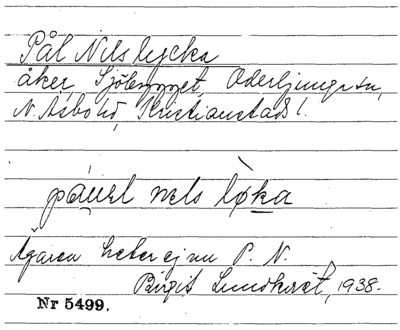 Pål Nils lycka
åker, Sjöbygget, Oderljunga sn,
N. Åsbo hd, Kristianstads l.
påuel nels løka
Ägaren heter ej nu P. N.
Birgit Lundkvist, 1938.
Nr 5499.